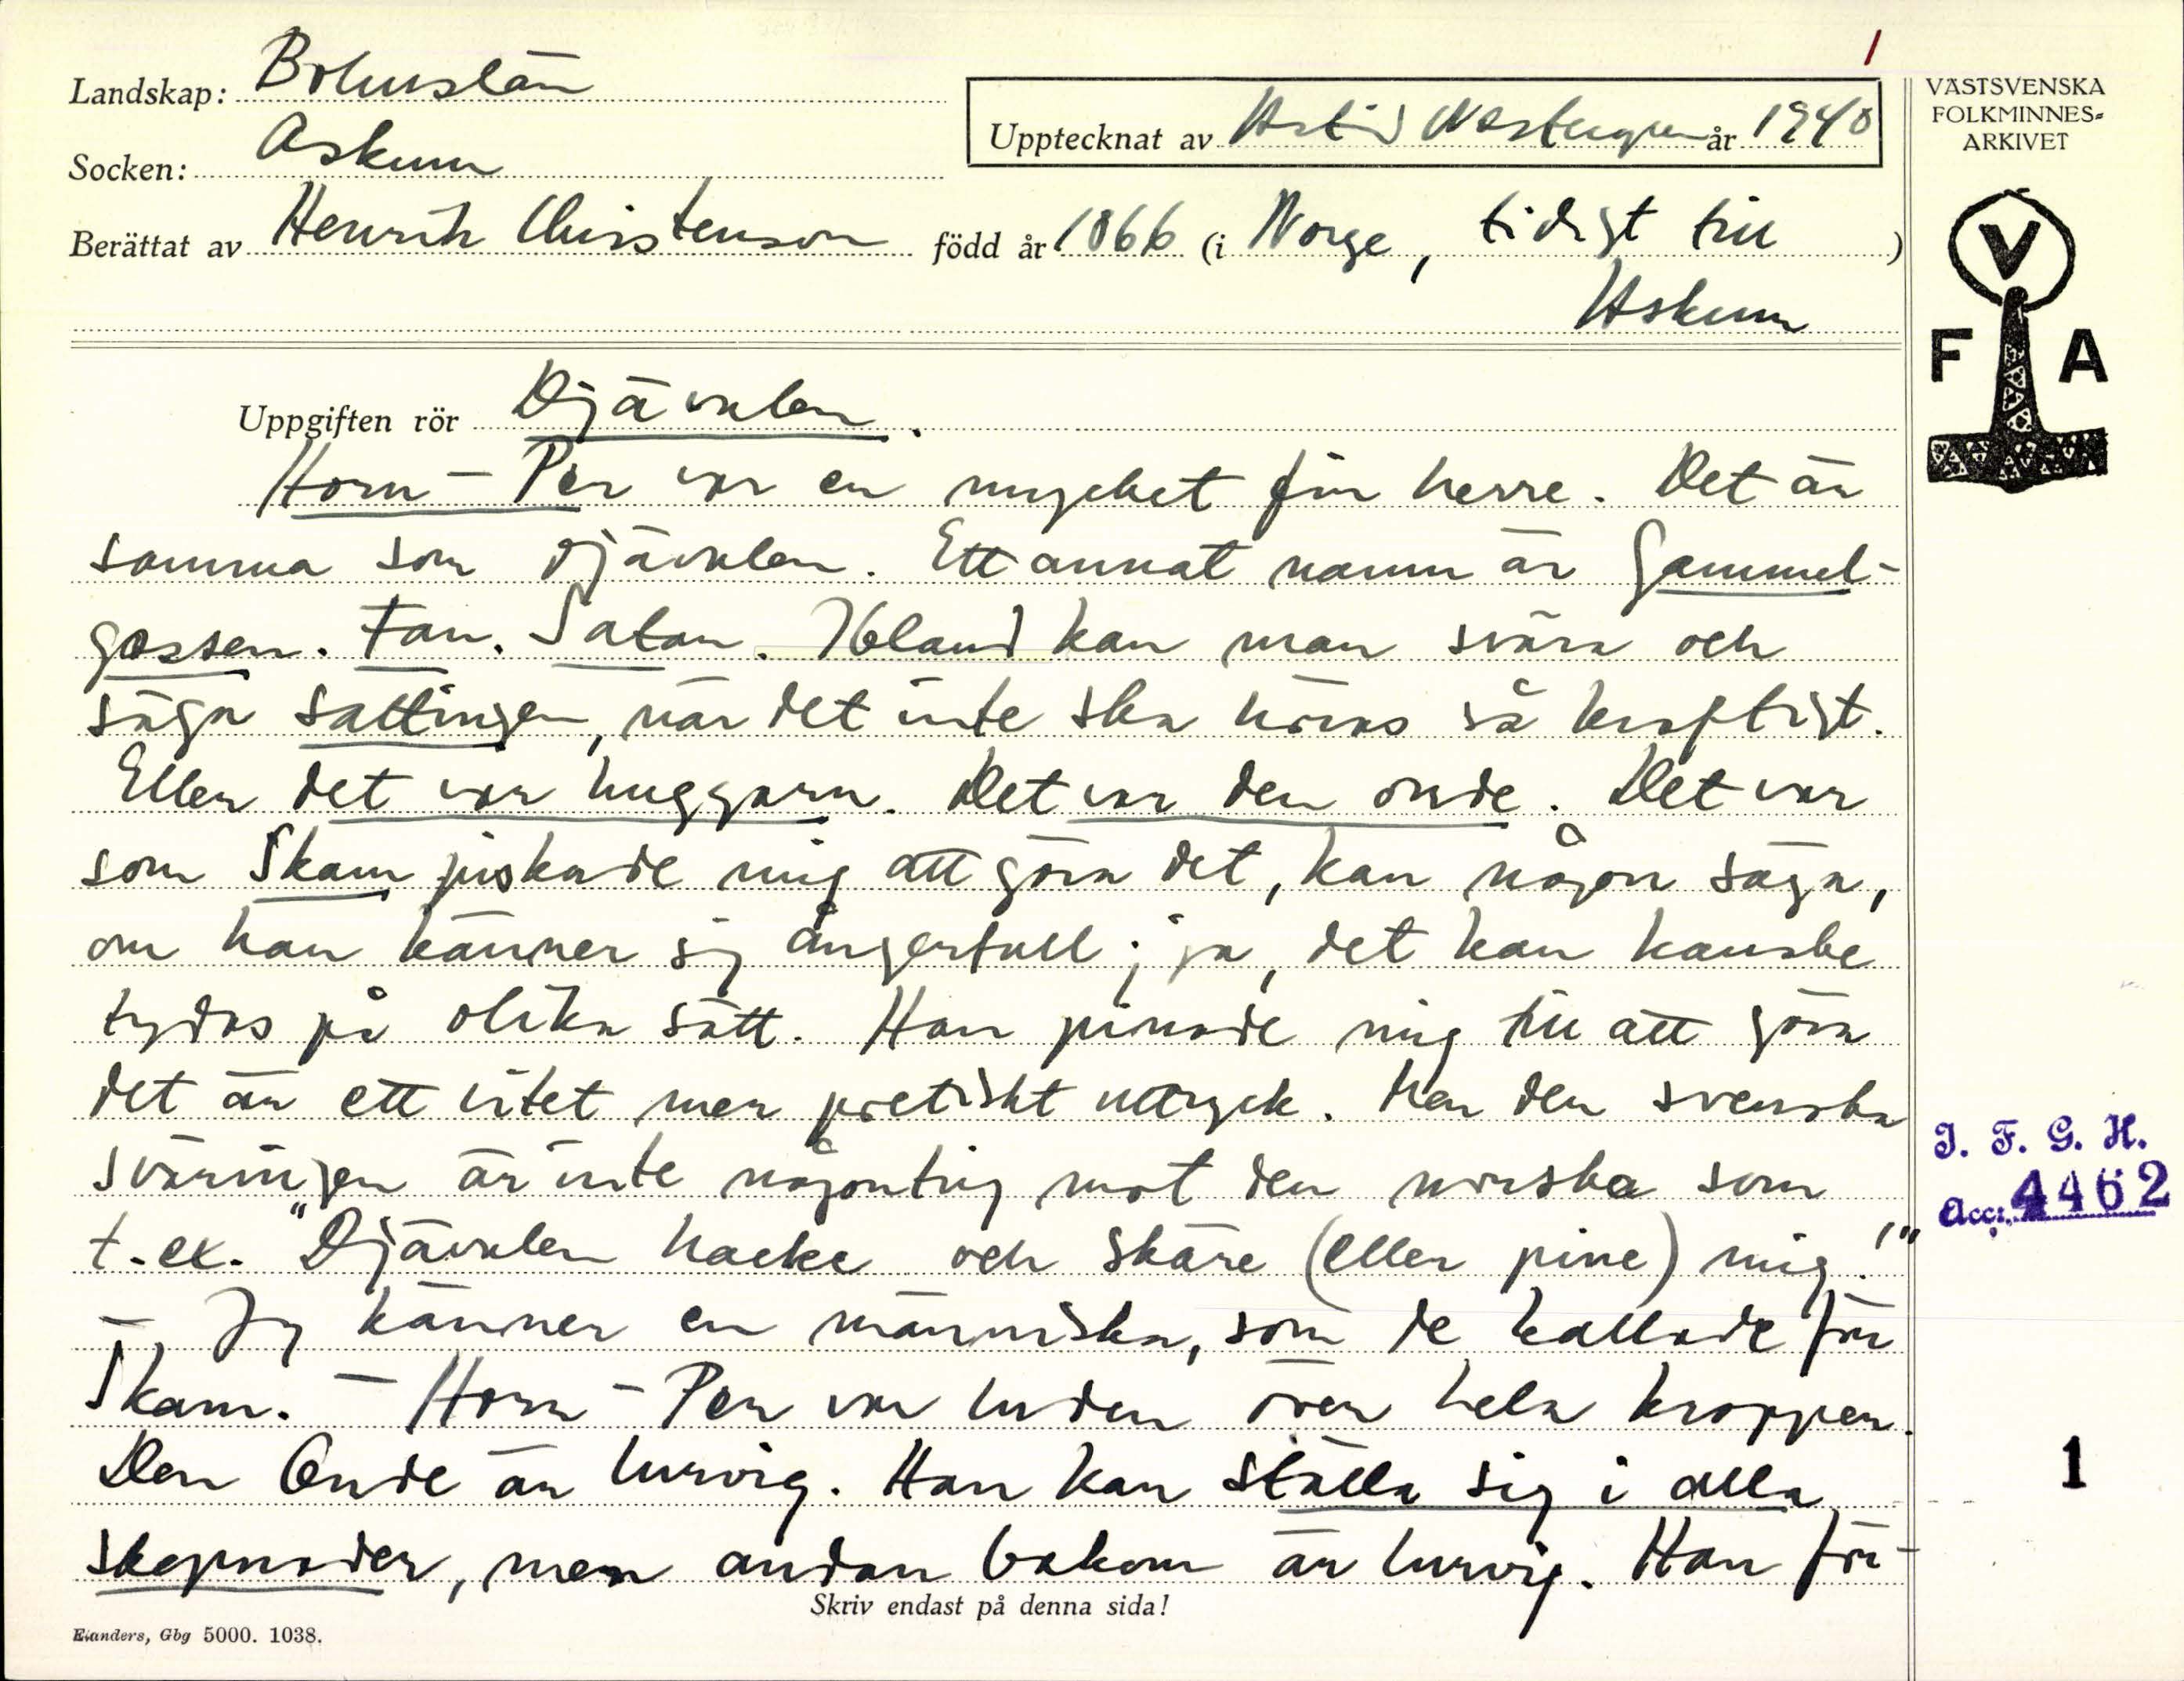 1
Landskap: Bohuslän
Socken: Askum
Upptecknat av Astrid år 1940
Berättat av Henrik Christenson född år 1866 (i Norge, tidigt till)
Askum
VÄSTSVENSKA
FOLKMINNES-
ARKIVET
V
F A
Uppgiften rör Djävulen.
Horn-Per var en mycket fin herre. Det är
samma som djävulen. Ett annat namn är Gammel-
gossen. Fan. Satan. Ibland kan man svära och
säga sattingen, när det inte ska höras så kraftigt.
Eller det var huggarn. Det var den onde. Det var
som Skam piskade mig att göra det, kan någon säga,
om han känner sig ångerfull; ja, det kan kanske
tydas på olika sätt. Han pinade mig till att göra
det är ett litet mer poetiskt uttryck. Men den svenska
sväringen är inte någonting mot den norska som
t.ex. "Djävulen hacke och skäre (eller pine) mig!"
- Jag känner en människa, som de kallade för
Skam. - Horn-Per var luden över hela kroppen.
Den Onde är lurvig. Han kan ställa sig i alla
skepnader, men andan bakom är lurvig. Han för-
Skriv endast på denna sida!
Elanders, Gbg 5000. 1038.
I. F. G. H.
Acc: 4462
1